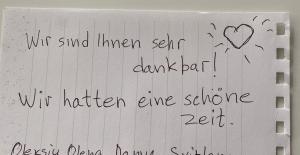 Wir sind Ihnen sehr
dankbar!
Wir hatten eine schöne
zeit.
Oleksiy Olena